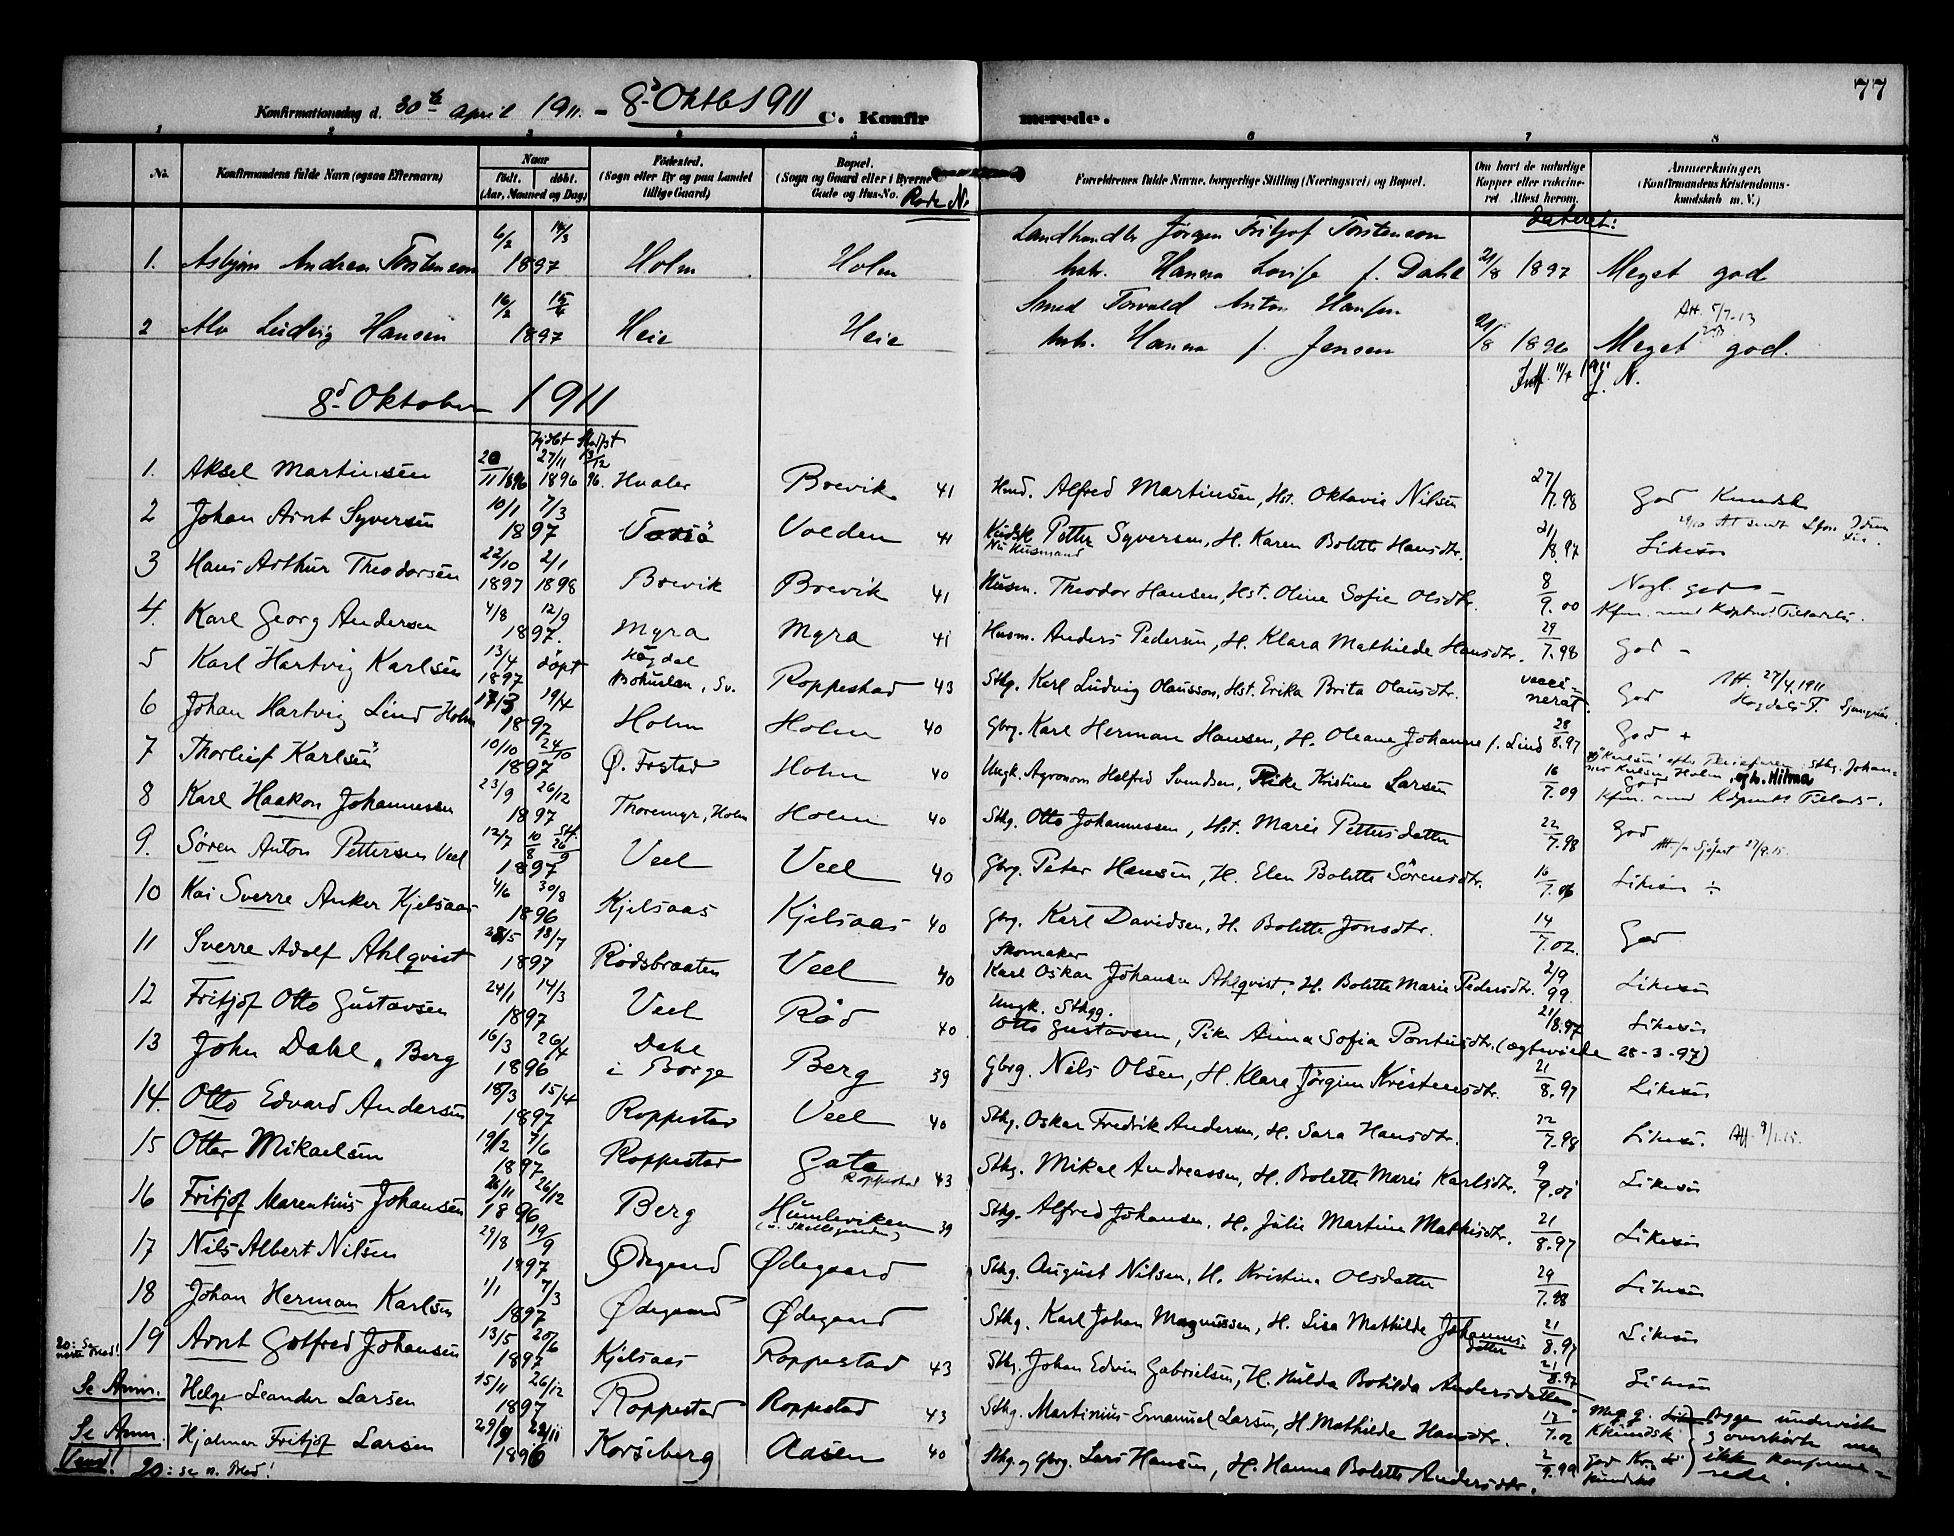 77
Konfirmationsdag d. 30te april 1911. - 8d Oktb 1911 C. Konfirmerede.
1 2 3 4 5 6 7 8
No. Konfirmandens fulde Navn (ogsaa Efternavn) Naar født. døbt. (Aar, Maaned og Dag) Födested. (Sogn eller By og paa Landet tillige Gaard) Bopæl. (Sogn og Gaard eller i Byerne Gade og Hus-No. Rode No Forældrenes fulde Navne, borgerlige Stilling (Næringsvei) og Bopæl. Om havt de naturlige Kopper eller vakcineret Attest herom. Anmerkninger. (Konfirmandens Kristendomskundskab m. V.)
dateret:
6/2 14/3 Landhandler Jørgen Fritjof Torstenson
1. Asbjørn Andreas Torstenson 1897 Holm Holm hstr. Hanna Lovise f. Dahl 21/8 1897 Meget god
16/2 15/6 Smed Torvald Anton Hansen Att. 5/7-13
2 Alv Ludvig Hansen 1897 Heie Heie hstr. Hanna f. Jensen 21/8 1896 Meget god.
8d Oktober 1911
1. Aksel Martinsen 20/11 1896 27/11 1896 13/12 96. Hvaler Brevik 41 Hmd. Alfred Martinsen, Hst. Oktavia Nilsen 27/7.98 God Kundsk
2 Johan Arnt Syversen 10/1 7/3 1897 Torsö Volden 41 Kudsk Petter Syversen, H. Karen Bolette Hansdtr. 21/8.97 Likesaa
Nu Husmand
3 Hans Arthur Theodorsen 22/10 1897 2/1 1898 Brevik Brevik 41 Husm. Theodor Hansen, Hst. Oline Sofie Olsdtr. 8/9.00 Nogl. god
4. Karl Georg Andersen 4/8 12/9 1897. Myra Myra 41 Husm. Anders Pedersen, H. Klara Mathilde Hansdtr. 29/7.98 God -
5 Karl Hartvig Karlsen 13/4 1897 döpt Högdal Bohuslen, Sv. Roppestad 43 Sthg. Karl Ludvig Olausson, Hst. Erika Brita Olausdtr. vaccinerat. God Att. 27/4.1911
6 Johan Hartvig Lind Holm 17/3 19/4 1897 Holm Holm 40 Gbrg. Karl Herman Hansen, H. Oleane Johanne f. Lind 28/8.97 God +
7 Thorleif Karlsen 10/10 24/10 1897 Ø. Frstad Holm 40 Ungk. Agronom Helfred Svendsen, Pike Kristine Larsen 16/7.09 God
og h. Hilma
8 Karl Haakon Johannessen 23/9 26/12 1897 Thoremyr, Holm Holm 40 Sthg. Otto Johannessen, Hst. Marie Pettersdatter 22/7.98 God
9. Søren Anton Pettersen Veel 12/7 10/8 Stf. 26/9 1897 Veel Veel 40 Gbrg. Peter Hansen, H. Elen Bolette Sörensdtr. 16/7.06 Likesaa ÷
10 Kai Sverre Anker Kjelsaas 4/6 30/8 1896 Kjelsaas Kjelsaas 40 Gbrg. Karl Davidsen, H. Bolette Jonsdtr. 14/7.02. God
11 Sverre Adolf Ahlqvist 28/5 18/7 1897 Rödsbraaten Veel 40 Skomaker Karl Oskar Johansen Ahlqvist, H. Bolette Marie Pedersdtr. 2/9 99. Likesaa
12 Fritjof Otto Gustavsen 24/1 14/3 1897 Veel Röd 40 Ungk. Sthgg. Otto Gustavsen, Pike Anna Sofia Pontusdtr. (ægteviede 28-3-97) 21/8.97 Likesaa
13 John Dahl, Berg 16/3 26/4 1896 Dahl i Borge Berg 39 Gbrg. Nils Olsen, H. Klara Jörgine Kristensdtr. 21/8.97 Likesaa
14. Otto Edvard Andersen 18/3 15/4 1897 Roppestad Veel 40 Sthg. Oskar Fredrik Andersen, H. Sara Hansdtr. 22/7.98 Likesaa. Att. 9/1.15.
15 Otto Mikaelsen 19/2 7/6 1897 Roppestad Gata Roppestad 43 Sthg. Mikal Andreassen, H. Bolette Marie Karlsdtr. 9/9.01 Likesaa
16 Fritjof Marentius Johansen 26/11 26/12 1896 Berg Humleviken 39 Sthg. Alfred Johansen, H. Julie Martine Mathisdtr. 21/8.97 Likesaa
17 Nils Albert Nilsen 29/8 19/9 1897 Ødegaard Ødegaard Sthg. August Nilsen, H. Kristina Olsdatter 29/7.98 Likesaa
18 Johan Herman Karlsen 1/1 7/3 1897 Ødegaard Ødegaard Sthg. Karl Johan Magnussen, H. Lisa Mathilde Johannesdatter 21/8.97 Likesaa
19 Arnt Gotfred Johansen 13/5 20/6 1897 Kjelsaas Roppestad 43 Sthg. Johan Edvin Gabrielsen, H. Hulda Bothilda Andersdatter. 21/8.97 Likesaa
20: Se neste Sted!
Se Anm. Helge Leander Larsen 15/11 26/12 1897 Roppestad Roppestad 43 Sthg. Martinius Emanuel Larsen, H. Mathilde Hansdtr. 17/7.02 Meg. g. Kr.kundsk. Begge underviste
Se Anm. Hjalmar Fritjof Larsen 29/9 22/11 1896 Korseberg Aasen 40 Sthg. og Gbrg. Lars Hansen, H. Hanna Bolette Andersdtr. 2/9.99 God Kr. kundsk. & overhørte men ikke konfirmerede.
Vend! 20: se n. Sted!